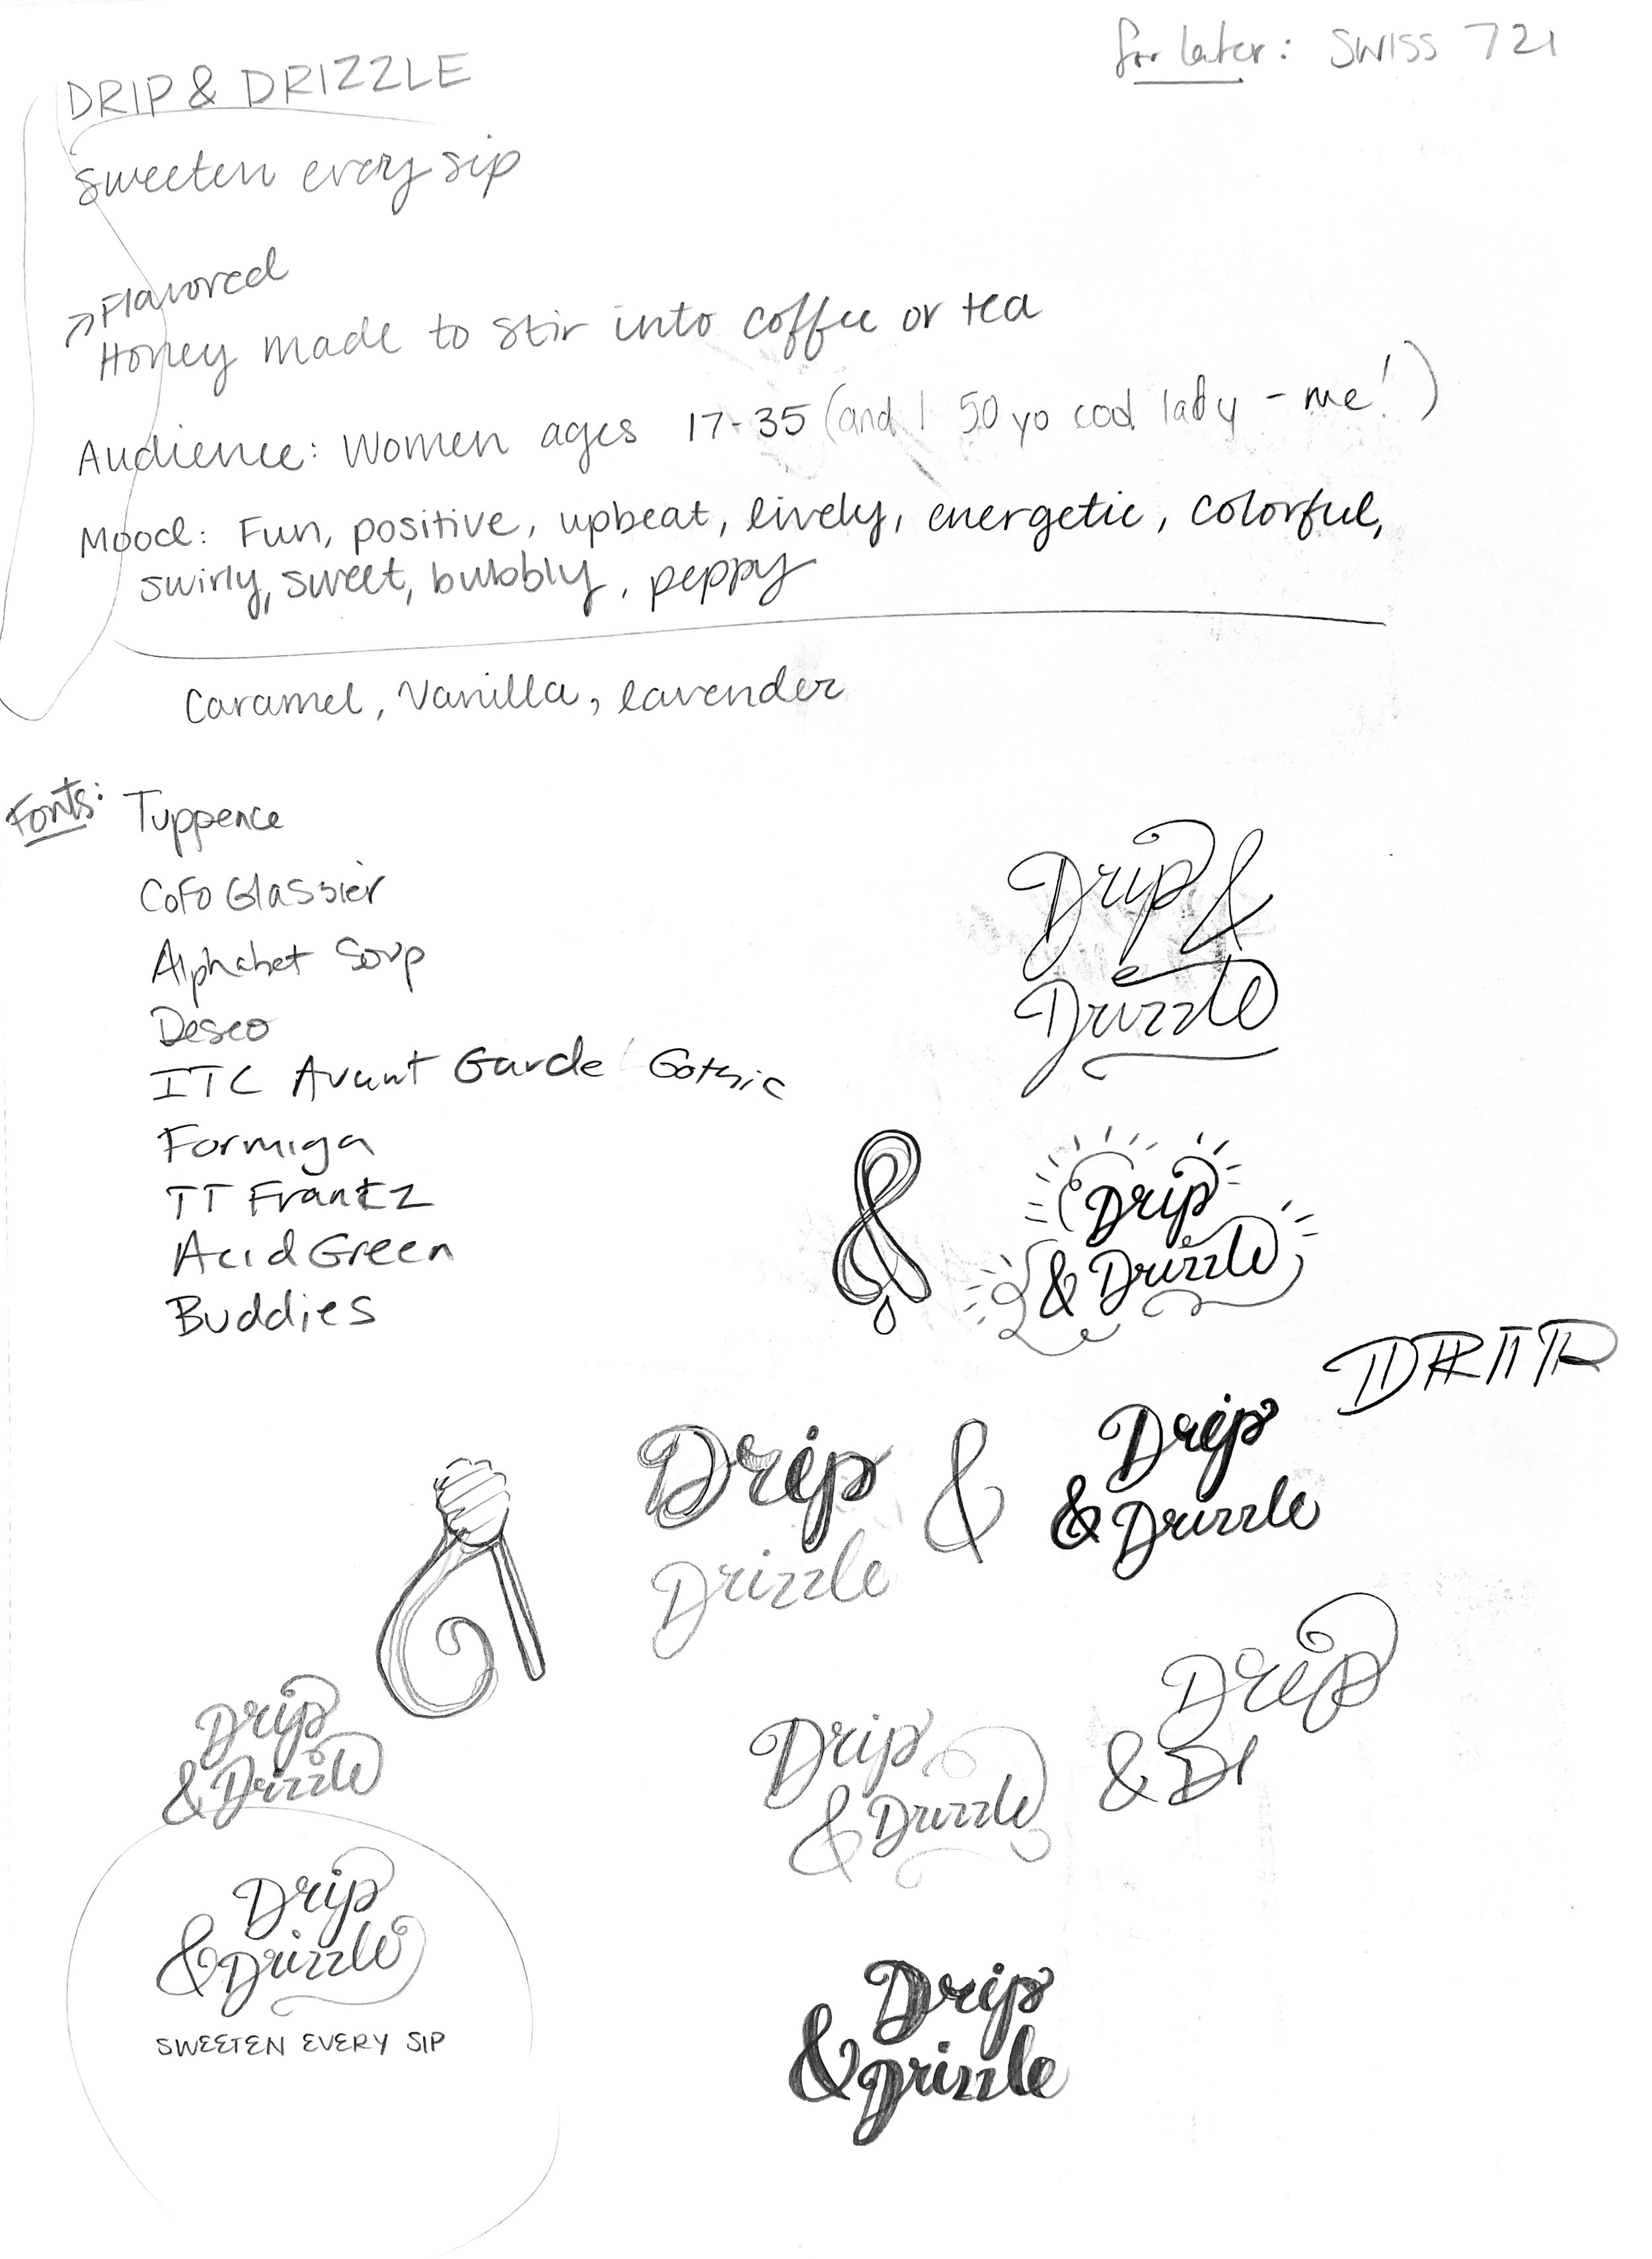 for later: SWISS 721
DRIP & DRIZZLE
sweeten every sip
Flavored
Honey made to stir into coffee or tea
Audience: Women ages 17-35 (and 1 50 yo cool lady - me!)
Mood: Fun, positive, upbeat, lively, energetic, colorful,
swirly, sweet, bubbly, peppy
Caramel, Vanilla, lavender
Fonts: Tuppence
CoFo Glassier
Alphabet Soup
Deseo
ITC Avant Garde Gothic
Formiga
TT Frantz
Acid Green
Buddies
Drip &
Drizzle
&
Drip
& Drizzle
DRIP
Drip &
Drizzle
Drip
& Drizzle
Drip
& Drizzle
Drip
& Drizzle
Drip
& Dr
Drip
& Drizzle
SWEETEN EVERY SIP
Drip
& Drizzle